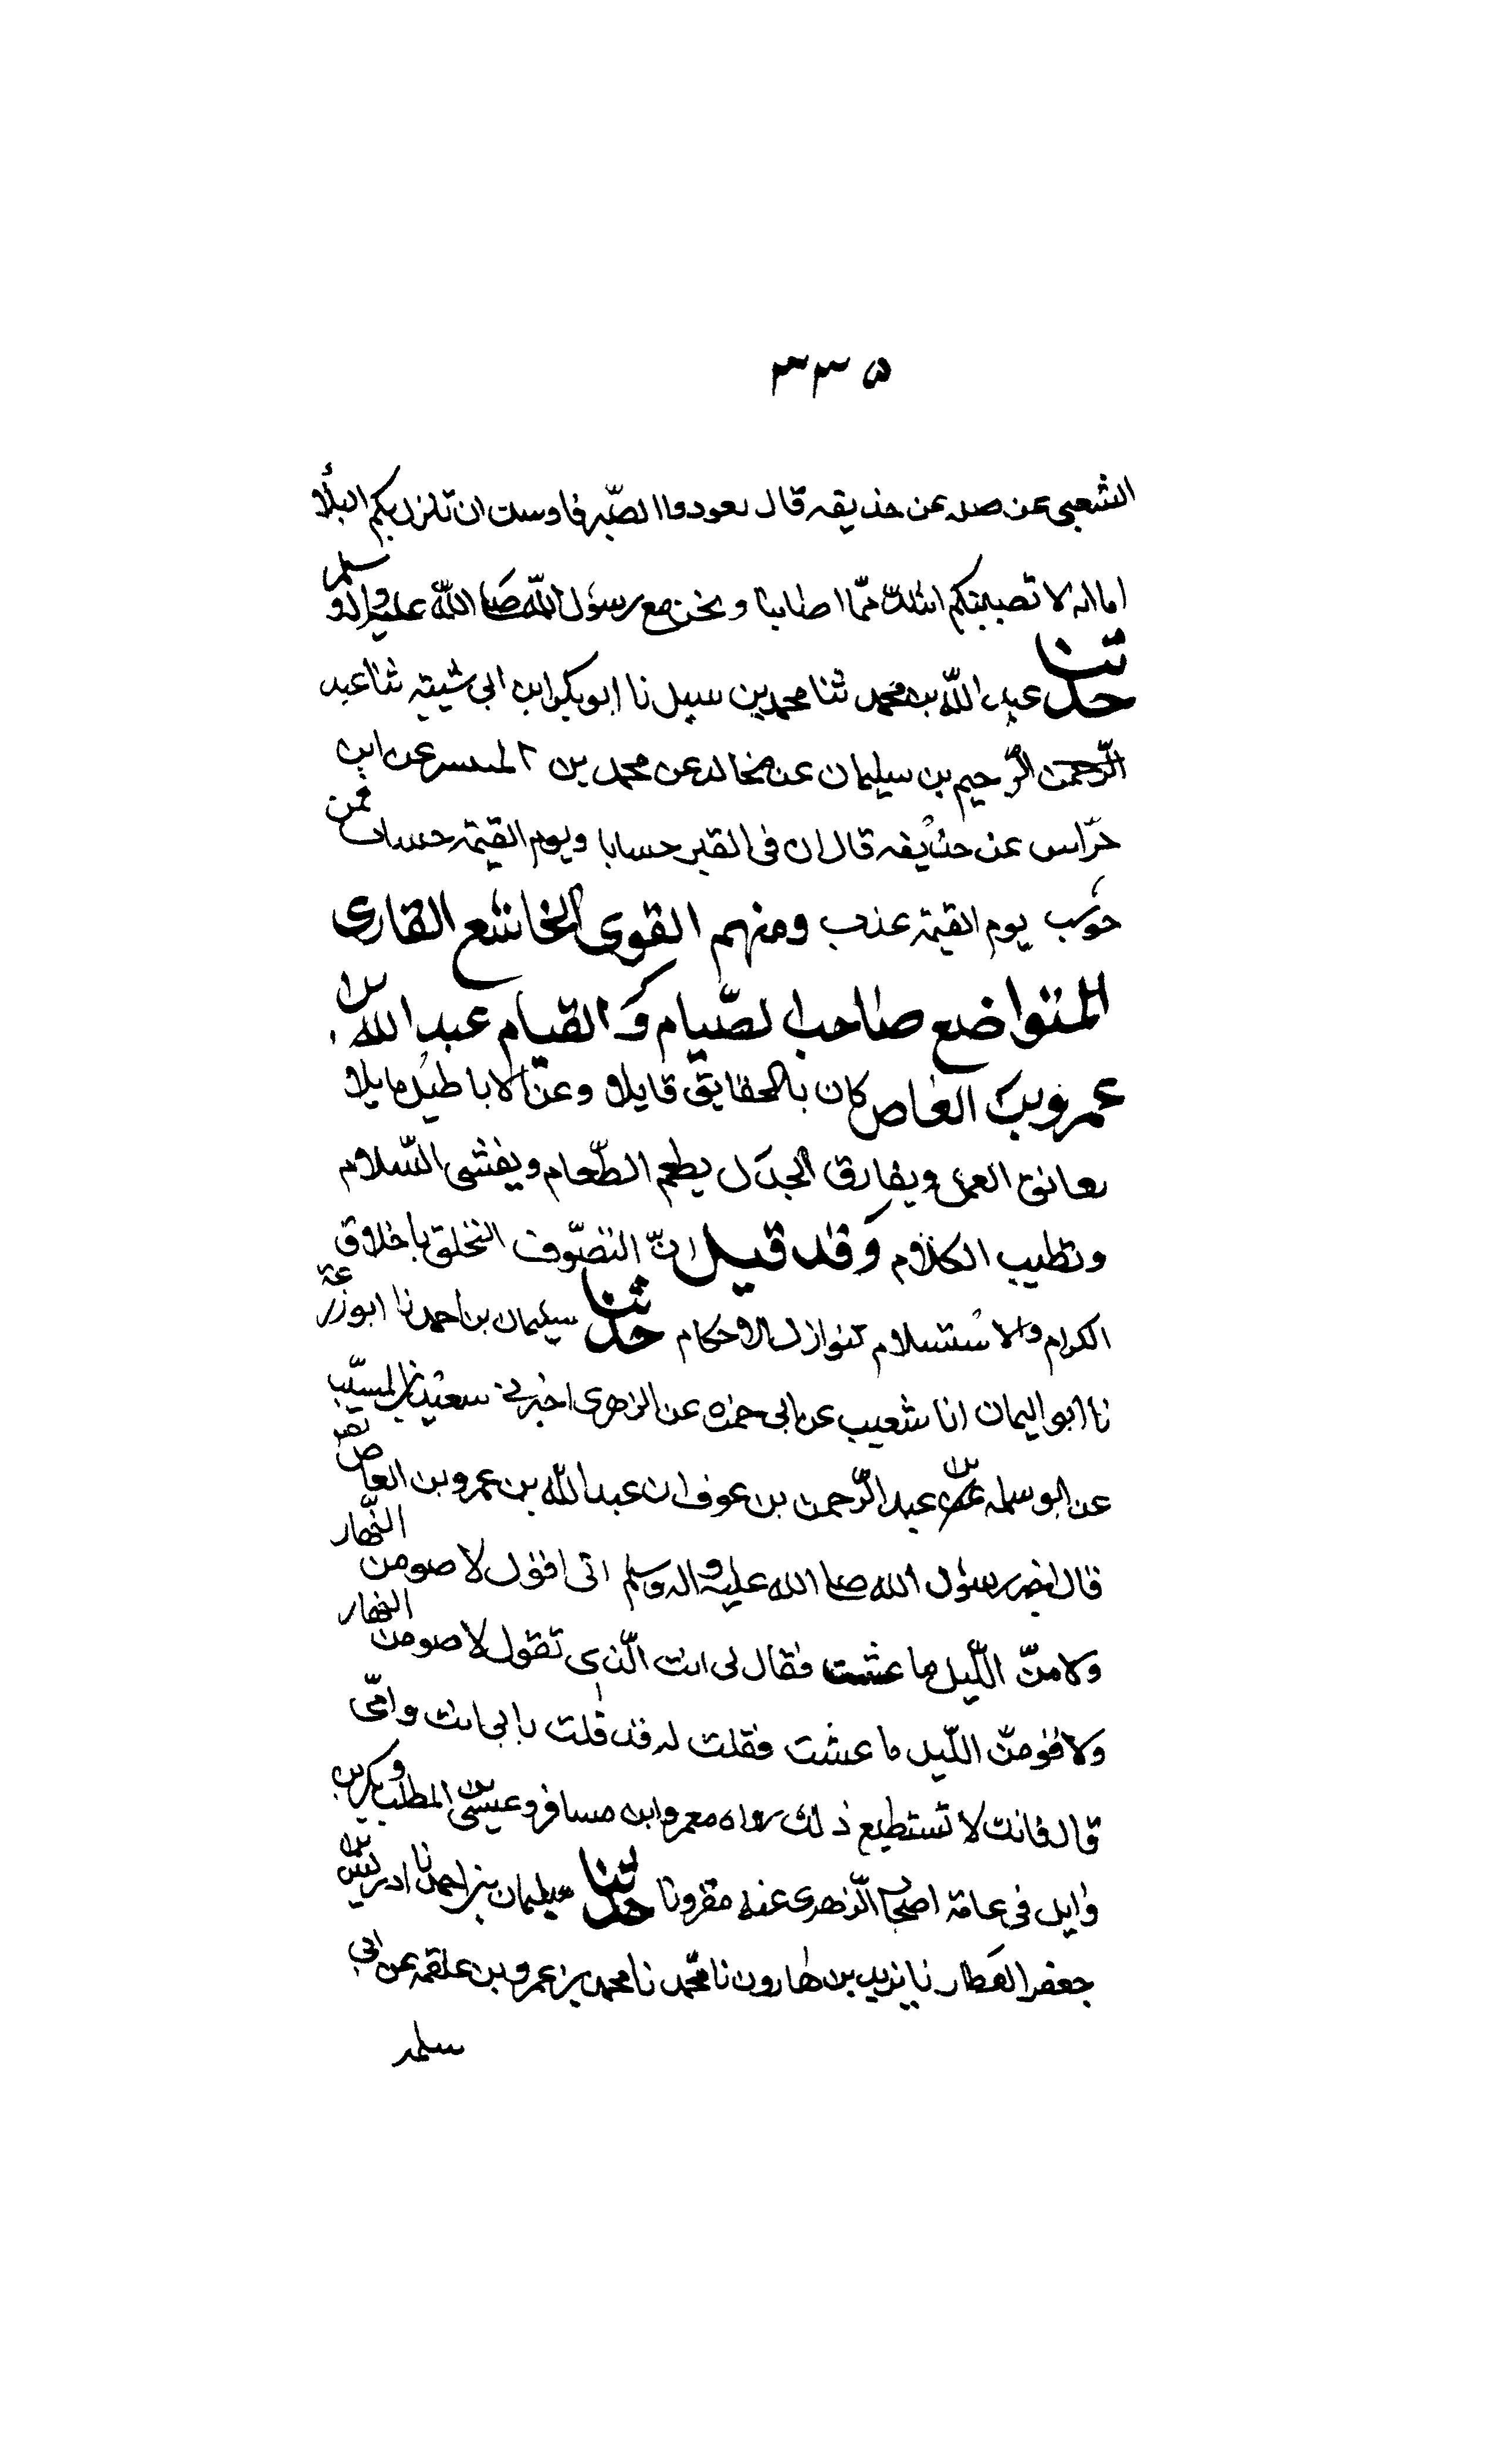 ۳۳۵
الشعبى عن صله عن حذيقه قال تعودوا الصّبر فاوست ان تنزل بكم البلأ
اما انه لا تصيبنكم اشد ممّا اصابنا ونحن مع رسول الله صلى الله عليه واله وسلم
حدثنا عبد الله بن محمد ثنا محمد بن سبيل نا ابو بكر ابن ابى شيبه ثنا عبد
الرّحيم بن سليمان عن مجالد عن محمد بن المنتسر عن ابن
حرّاس عن حذيفه قال ان فى القبر حسابا ويوم القيمة حساب فمن
حوسب يوم القيمة عذب ومنهم القوى الخاشع القارى
المتواضع صاحب الصّيام وَالقيام عبد الله بن
عمرو بن العاص كان بالحقايق قايلا وعن الاباطيل مايلا
يعانق العمل ويفارق الجدَل يطعم الطّعام ويفشى السّلام
ويطيب الكلام وَقد قيل انّ التصّوف التخلق باخلاق
الكرام والاستسلام لنوازل الاحكام حدثنا سليمان بن احمد نا ابو زرعة
نا ابو اليمان انا شعيب عن ابى حمزه عن الزهرى اخبرنى سعيد بن المسيّب
عن ابو سلمه بن عبد الرّحمن بن عوف ان عبد الله بن عمرو بن العاص
قال اخبر رسول الله صلى الله عليه واله وسلم انى اقول لاصومن النّهار
ولامنّ اللّيل ما عشت فقال لى انت الّذى تقول لاصومن النهار
ولاقومنّ اللّيل ما عشت فقلت له قد قلت بابى انت وامّى
قال فانت لا تستطيع ذلك رواه معمر وابن مسافر وعيسى بن المطلب وبكر بن
وايل فى عامة اصحاب الّزهرى عنه مقرونا حدثنا سليمان بن احمد نا ادريس بن
جعفر العَطار نا يزيد بن هارون نا محمّد نا محمد بن عمرو بن علقمه عن ابى
سلمه